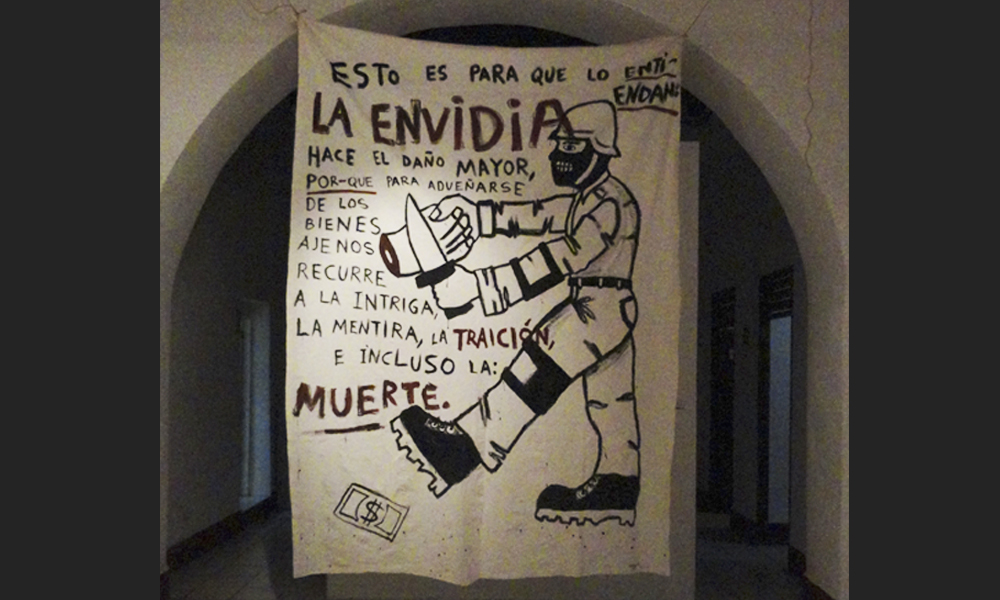 ESTO ES PARA QUE LO ENTI-
ENDAN:
LA ENVIDIA
HACE EL DAÑO MAYOR,
POR-QUE PARA ADUEÑARSE
DE LOS
BIENES
AJENOS
RECURRE
A LA INTRIGA,
LA MENTIRA, LA TRAICIÓN,
E INCLUSO LA:
MUERTE.
$